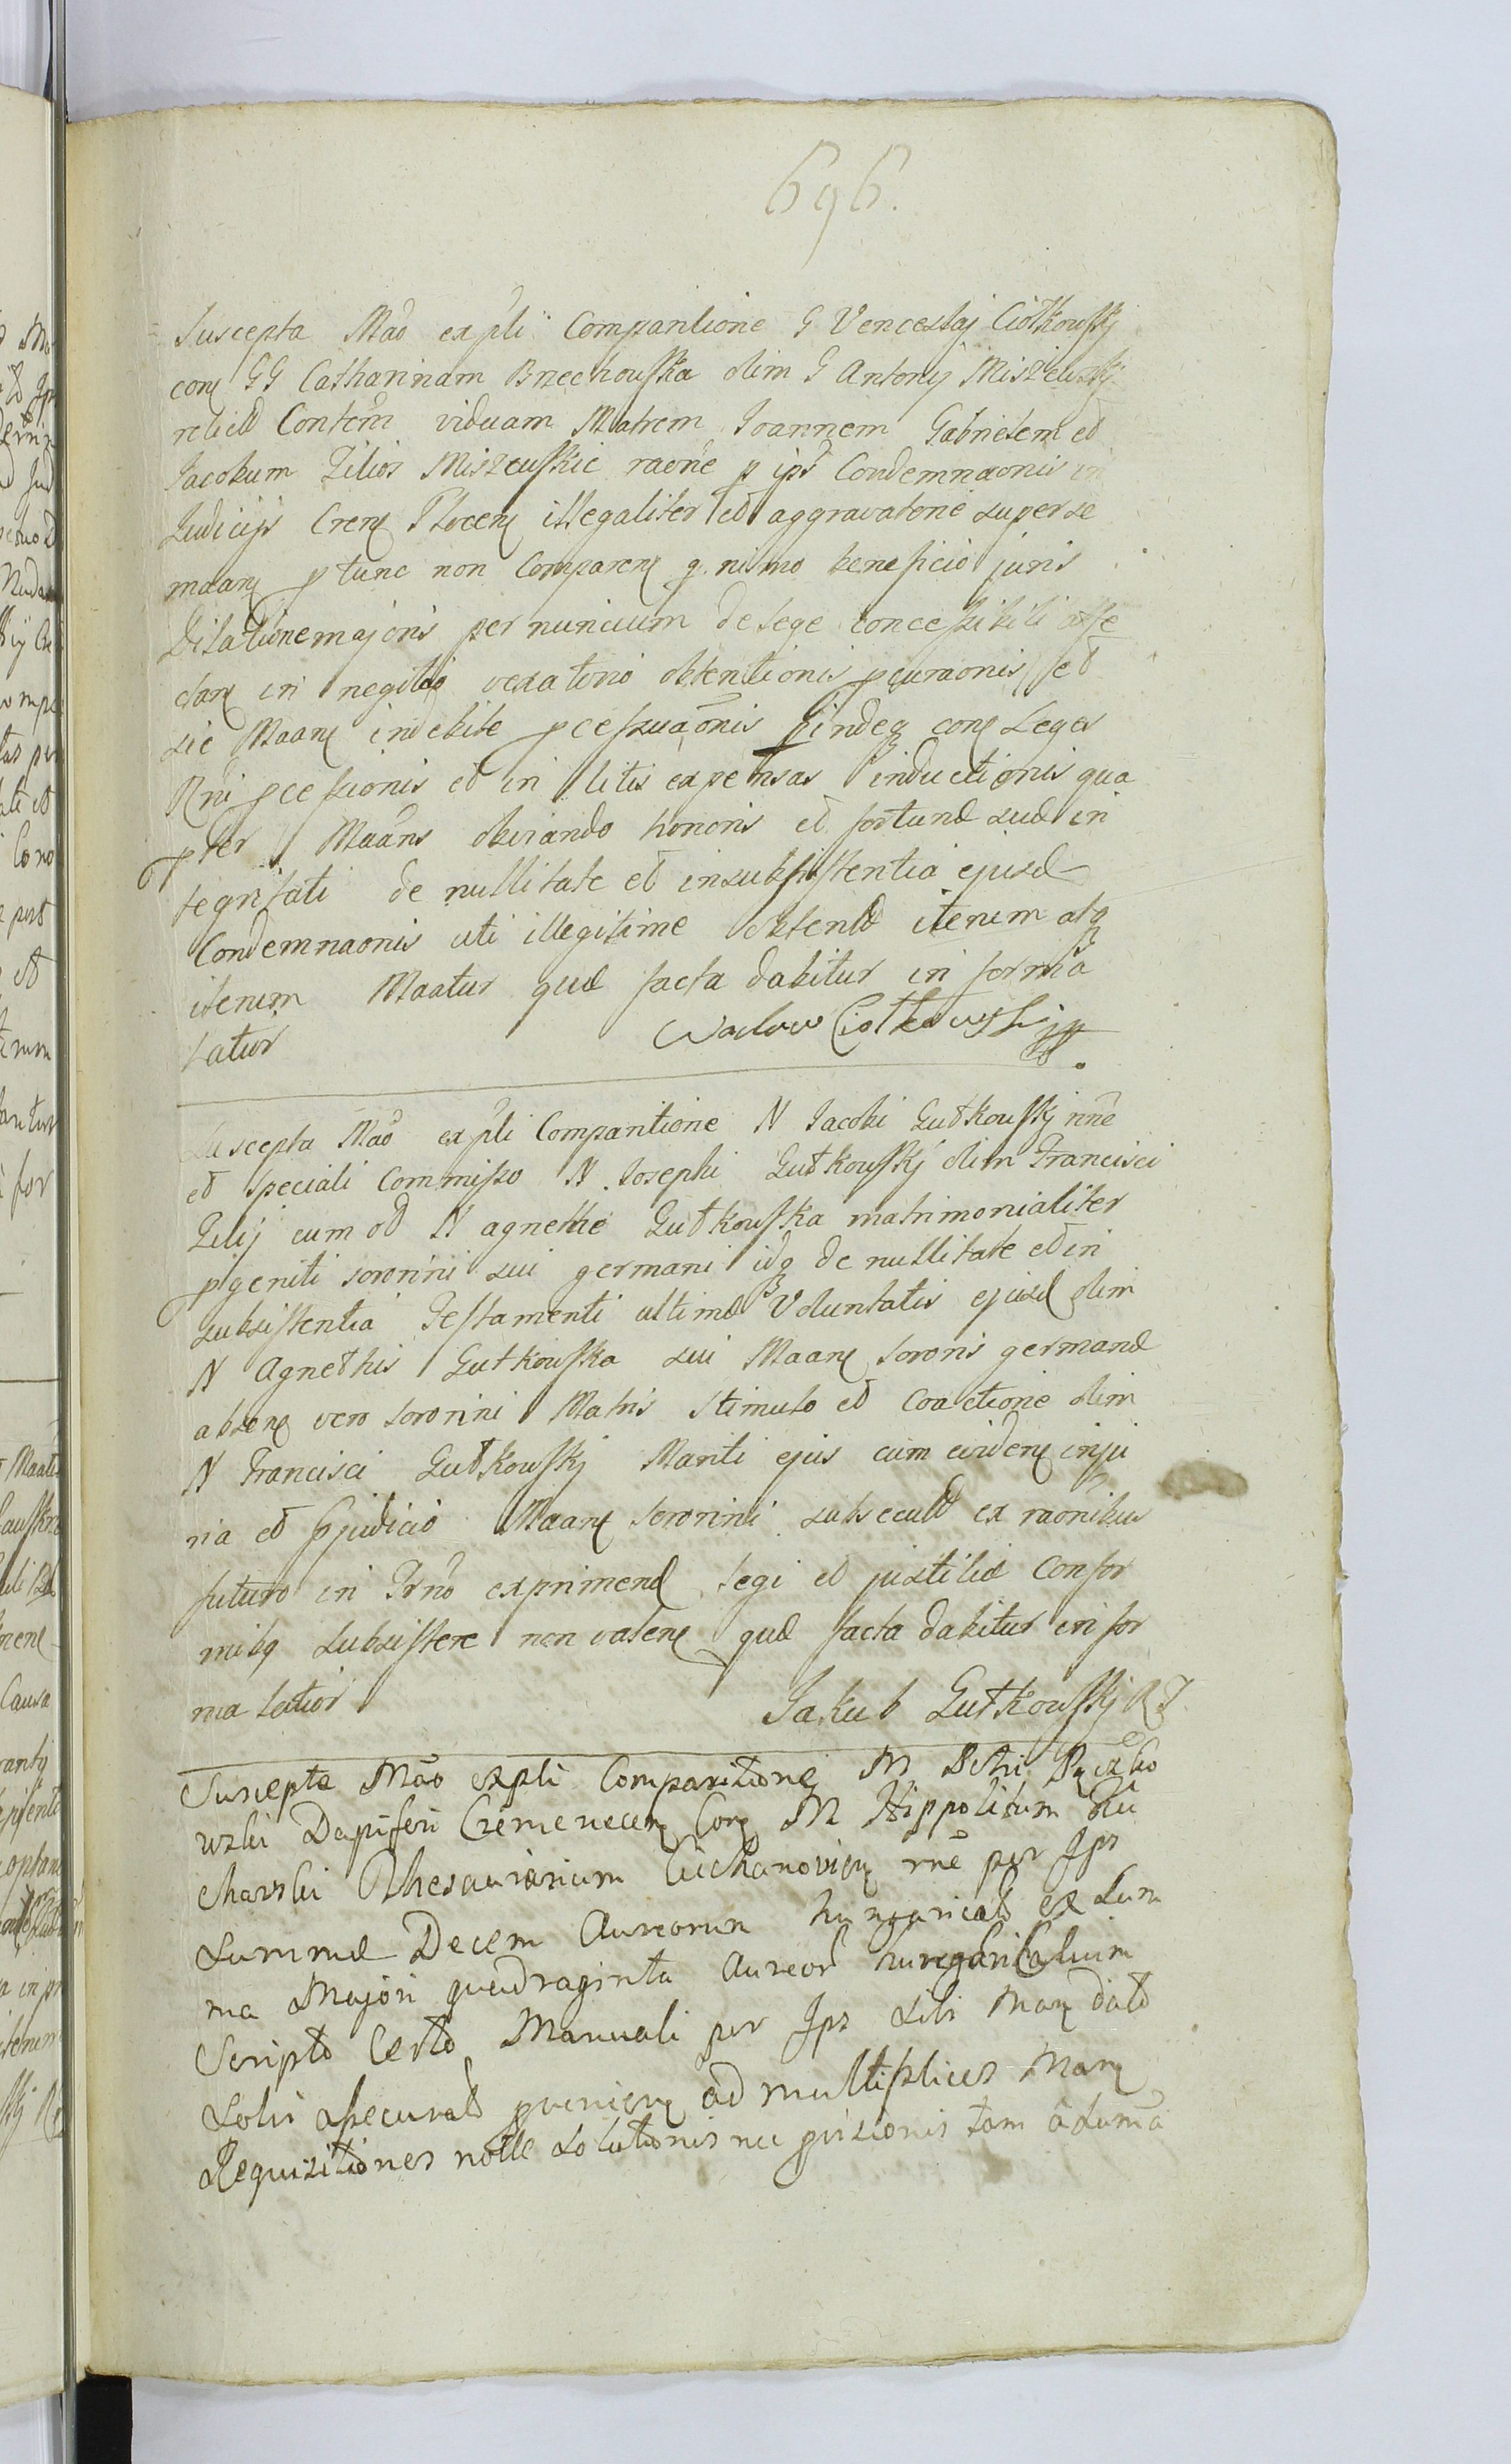 696.
Suscepta Mao expli Comparitione G Venceslaj Ciółkowskj
con GG Catharinam Brzechouska olim G Antonij Miszewskj
relict Contem viduam Matrem Joannem Gabrielem et
Jacobum Filios Miszeuskie raone p ips Condemnaonis in
Judicijs Cren Plocen illegaliter et aggravatorie super se
maan p tunc non Comparen q nimo beneficio juris
Dilatione majoris per nuncium de lege concessibili affe
ctan in negitio vexatorio obtentionis pcuraonis et
sic Maan indebite pcessuaonis pindeq con Leges
Rni pcessionis et in litis expensas inductionis qua
pter Maans obviando honoris et fortunæ suæ in
tegritati de nullitate et insubsistentia ejusd
Condemnaonis uti illegitime obtent iterum atq
iterum Maatur quæ facta dabitur in forma
latior
Wacław Ciołkowski
Suscepta Mao expli Comparitione N Jacobi Gutkouskj nne
et speciali Commisso N Josephi Gutkouskj olim Francisci
Filij cum od N agnethe Gutkouska matrimonialiter
pgeniti sororini sui germani idq de nullitate et in
subsistentia Testamenti ultimæ Voluntatis ejusd olim
N Agnethis Gutkouska sui Maan sororis germanæ
absen vero sororini Matris stimulo et Coactione olim
N Francisci Gutkouskj Mariti ejus cum eviden inju
ria et pjudicio Maan sororini subsecut ex raonibus
futuro in Trno exprimend legi et justitiæ Confor
mibq subsistere non valen quæ facta dabitur in for
ma latior
Jakub Gutkouskj
Suscepta Mao expli Comparitione M Petri
wski Dapiferi Cremenecen Con M Hippolitum Ru
charski Thesaurarium Ciechanovien rne per Ips
Summæ Decem Aureorum hungarical ex Sum
ma Majori quadraginta Aureor hungaricalium
Scripto Certo Manuali per Ips Sibi Man dato
Solvi assecurat pvenien ad multiplices Man
Requisitiones nolle Solutionis nec tam a Summa